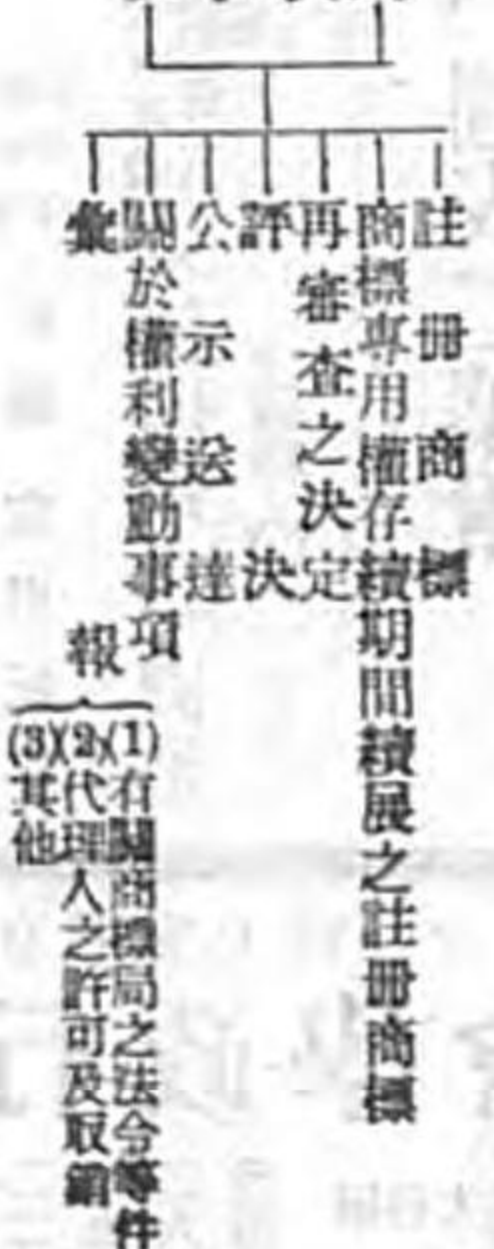 註冊商標
商標專用權存續期間續展之註冊商標
再審查之決定
評決
公示送達
關於權利變動事項
彙報
(1)有關商標局之法令等件
(2)代理人之許可及取銷
(3)其他